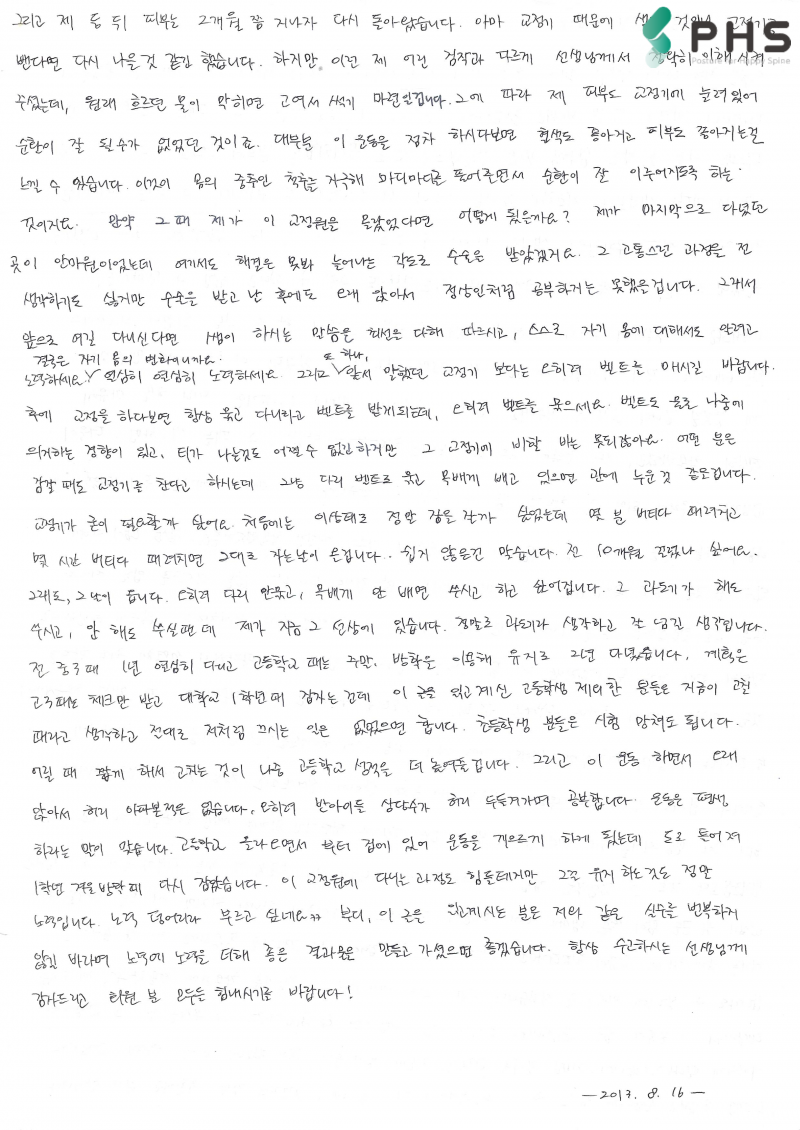 PHS
Posture for Happy Spine
그리고 제 등 뒤 피부는 2개월 쯤 지나자 다시 돌아왔습니다. 아마 교정기 때문에 교정기를
뺀다면 다시 나을 것 같긴 했습니다. 하지만, 이런 제 어린 짐작과 다르게 선생님께서 정확히 이해시켜
주셨는데, 원래 흐르던 물이 막히면 고여서 썩기 마련인겁니다. 그에 따라 제 피부도 교정기에 눌려있어
순환이 잘 될수가 없었던 것이죠. 대부분 이 운동을 점차 하시다보면 혈색도 좋아지고 피부도 좋아지는걸
느낄 수 있습니다. 이것이 몸의 중추인 척추를 자극해 마디마디를 풀어주면서 순환이 잘 이루어지도록 하는
것이지요. 만약 그 때 제가 이 교정원을 몰랐었다면 어떻게 됬을까요? 제가 마지막으로 다녔던
곳이 안마원이었는데 여기서도 해결은 못봐 늘어나는 각도로 수술은 받았겠지요. 그 고통스런 과정을 전
생각하기도 싫지만 수술을 받고 난 후에도 오래 앉아서 정상인처럼 공부하지는 못했을겁니다. 그래서
앞으로 여길 다니신다면 쌤이 하시는 말씀을 최선을 다해 따르시고, 스스로 자기 몸에 대해서도 알려고
결국은 자기 몸의 변화이니까요. 또 하나,
노력하세요. 열심히 열심히 노력하세요. 그리고 앞서 말했던 교정기 보다는 오히려 벨트를 매시길 바랍니다.
후에 교정을 하다보면 항상 묶고 다니라고 벨트를 받게되는데, 오히려 벨트를 묶으세요. 벨트도 물론 나중에
의지하는 경향이 있고, 티가 나는것도 어쩔 수 없긴하지만 그 교정기에 비할 바는 못되잖아요. 어떤 분은
잠잘 때도 교정기를 찬다고 하시는데 그냥 다리 벨트로 묶고 목베개 베고 있으면 관에 누운 것 같을겁니다.
교정기가 굳이 필요할까 싶어요. 처음에는 이상태로 정말 잠을 잘까 싶었는데 몇 분 버티다 때려치고
몇 시간 버티다 때려치면 그대로 자는날이 온겁니다. 쉽게 않을건 맞습니다. 전 10개월 걸렸나 싶어요.
그래도, 그 날이 옵니다. 오히려 다리 안묶고, 목베개 안 베면 쑤시고 하고 싶어집니다. 그 과도기가 해도
쑤시고, 안 해도 쑤실땐데 제가 지금 그 선상에 있습니다. 정말로 과도기라 생각하고 잘 넘길 생각입니다.
전 중3때 1년 열심히 다니고 고등학교 때는 주말, 방학을 이용해 유지로 2년 다녔습니다. 계획은
고3때는 체크만 받고 대학교 1학년때 잡자는건데 이 글을 읽고계신 고등학생 제외한 분들은 지금이 고칠
때라고 생각하고 절대로 저처럼 끄시는 일은 없었으면 합니다. 초등학생 분들은 시험 망쳐도 됩니다.
어릴 때 짧게 해서 고치는 것이 나중 고등학교 성적을 더 높여줄겁니다. 그리고 이 운동 하면서 오래
앉아서 허리 아파본적은 없습니다. 오히려 반아이들 상당수가 허리 두들겨가며 공부합니다. 운동은 평생
하라는 말이 맞습니다. 고등학교 올라오면서 부터 집에 있어 운동을 게으르게 하게 됬는데 도로 틀어져
1학년 겨울 방학때 다시 잡았습니다. 이 교정원에 다니는 과정도 힘들테지만 그걸 유지 하는것도 정말
노력입니다. 노력 덩어리라 부르고 싶네요ㅋㅋ 부디, 이 글을 읽고계시는 분은 저와 같은 실수를 번복하지
않길 바라며 노력에 노력을 더해 좋은 결과물을 만들고 가셨으면 좋겠습니다. 항상 수고하시는 선생님께
감사드리고 회원 분 모두들 힘내시기를 바랍니다!
— 2013. 8. 16 —